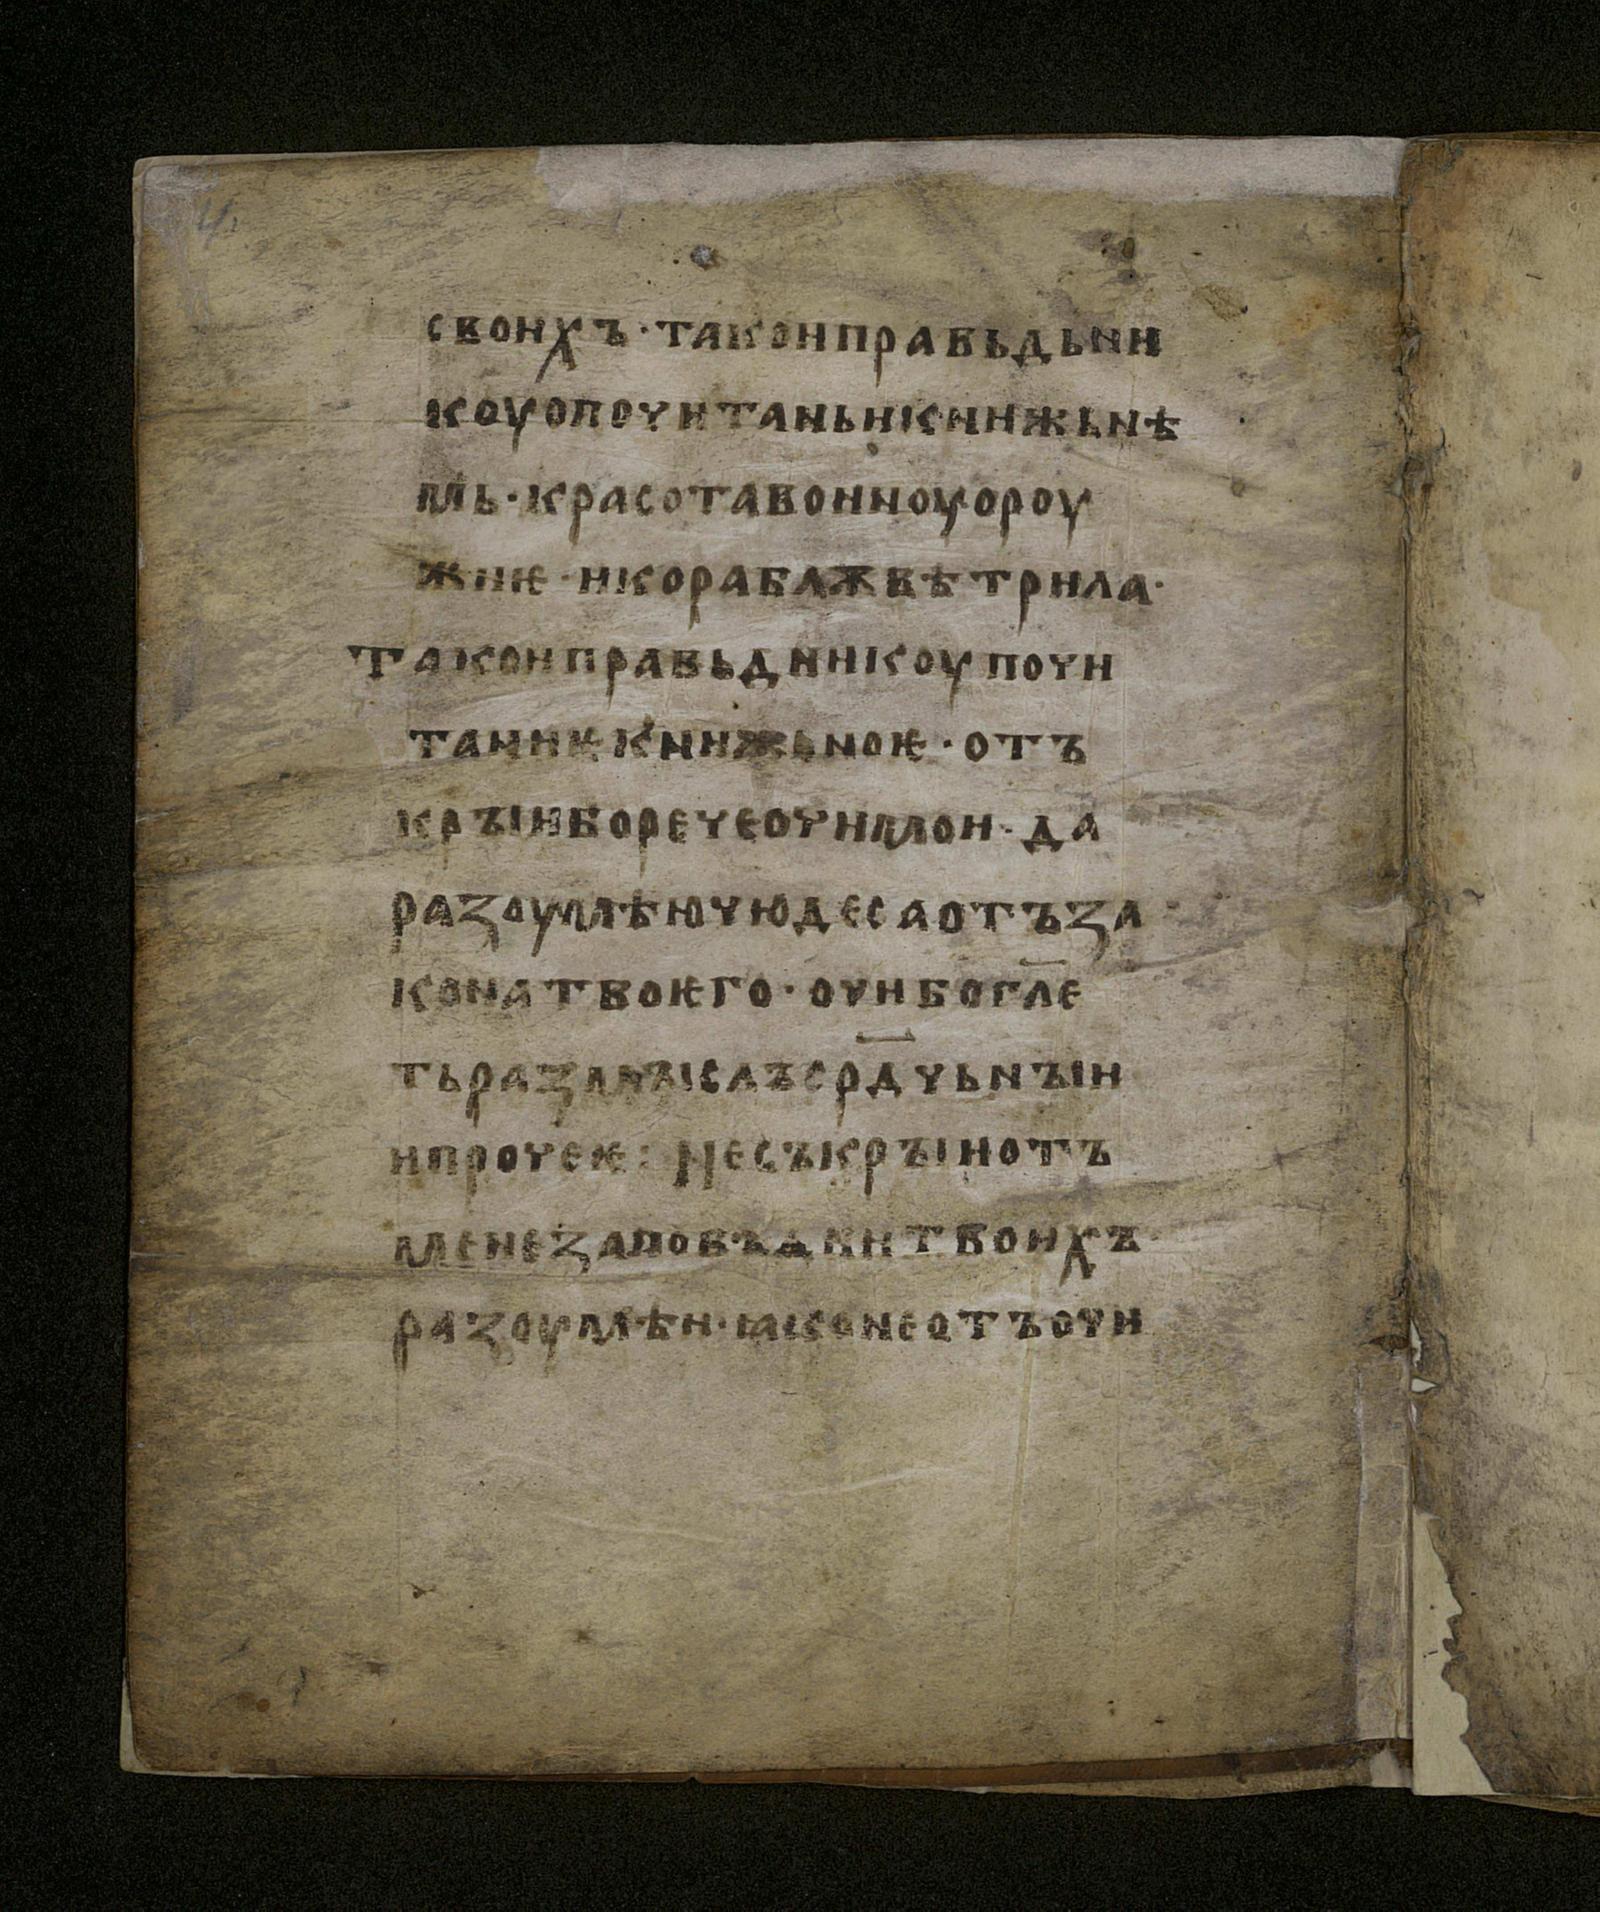 своихъ·такоиправьдьни
коуопочитаньикнижьнѣ
мь·красотавоиноуороу
жиѥ·икораблѫвѣтрила·
такоиправьдникоупочи
таниѥкнижьноѥ·отъ
кръıиборечеочимои·да
разоумѣючюдесаотъза
конатвоѥго·очибогл҃е
тьразмъıслъср҃дчьнъıи
ипрочеѥ: несъкръıиотъ
менезаповѣдиитвоихъ·
разоумѣи·ꙗконеотъочи